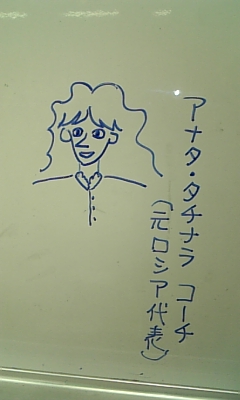 アナタ・タチナラ コーチ
(元ロシア代表)